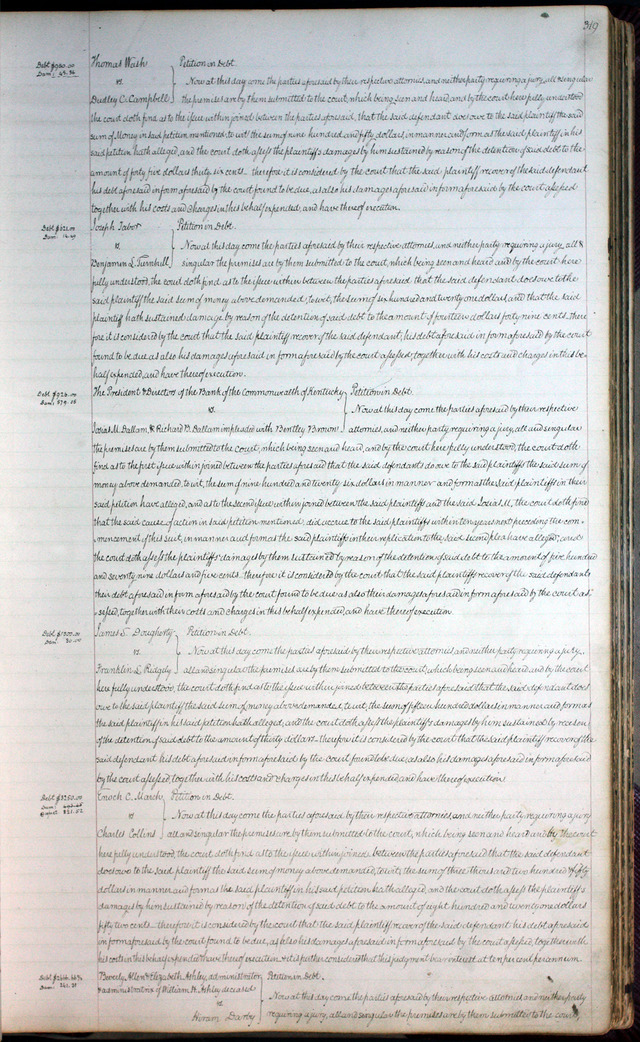 319
Debt $950.00
Dam: 45.36
Thomas Wash } Petition in Debt.
vs. Now at this day come the parties aforesaid by their respective attornies, and neither party requiring a jury, all & singular
Dudley C. Campbell } the premises are by them submitted to the court, which being seen and heard, and by the court here fully understood
the court doth find, as to the issue within joined between the parties aforesaid, that the said defendant does owe to the said plaintiff the said
sum of Money in said petition mentioned, to wit: the sum of nine hundred and fifty dollars, in manner and form as the said plaintiff in his
said petition hath alleged, and the court doth assess the plaintiff's damages by him sustained by reason of the detention of said debt to the
amount of forty five dollars thirty six cents. therefore it is considered by the court that the said plaintiff recover of the said defendant
his debt aforesaid in form aforesaid by the court found to be due, as also his damages aforesaid in form aforesaid by the court assessed
together with his costs and charges in this behalf expended, and have thereof execution.
Debt $621.00
Dam: 14.49
Joseph Tabor } Petition in Debt.
vs. Now at this day come the parties aforesaid by their respective attornies, and neither party requiring a jury, all &
Benjamin L. Turnbull } singular the premises are by them submitted to the court, which being seen and heard and by the court here
fully understood, the court doth find, as to the issue within between the parties aforesaid that the said defendant does owe to the
said plaintiff the said sum of money above demanded, to wit, the sum of six hundred and twenty one dollars, and that the said
plaintiff hath sustained damage by reason of the detention of said debt to the amount of fourteen dollars forty nine cents. there
fore it is considered by the court that the said plaintiff recover of the said defendant, his debt aforesaid in form aforesaid by the court
found to be due as also his damages aforesaid in form aforesaid by the court assessed, together with his costs and charges in this be
half expended, and have thereof execution.
Debt $926.00
Dam: 579.05
The President & Directors of the Bank of the Commonwealth of Kentucky } Petition in Debt.
vs. Now at this day come the parties aforesaid by their respective
Josias M. Dallam, & Richard B. Dallam impleaded with Bentley Brown } attornies, and neither party requiring a jury, all and singular
the premises are by them submitted to the court, which being seen and heard, and by the court here fully understood, the court doth
find as to the first issue within joined between the parties aforesaid that the said defendants do owe to the said plaintiffs the said sum of
money above demanded, to wit, the sum of nine hundred and twenty six dollars in manner and form as the said plaintiffs in their
said petition have alleged, and as to the second issue within joined between the said plaintiffs and the said Josias M., the court doth find
that the said cause of action in said petition mentioned, did accrue to the said plaintiffs within ten years next preceding the com-
mencement of this suit, in manner and form as the said plaintiffs in their replication to the said second plea have alleged; and
the court doth assess the plaintiffs' damages by them sustained by reason of the detention of said debt to the amount of five hundred
and seventy nine dollars and five cents. therefore it is considered by the court that the said plaintiffs recover of the said defendants
their debt aforesaid in form aforesaid by the court found to be due as also their damages aforesaid in form aforesaid by the court as-
sessed, together with their costs and charges in this behalf expended and have thereof execution.
Debt $1500.00
Dam: 30.00
James S. Dougherty } Petition in Debt.
vs. Now at this day come the parties aforesaid by their respective attornies and neither party requiring a jury,
Franklin L. Ridgely } all and singular the premises are by them submitted to the court, which being seen and heard and by the court
here fully understood, the court doth find as to the issue within joined between the parties aforesaid that the said defendant does
owe to the said plaintiff the said sum of money above demanded, to wit, the sum of fifteen hundred dollars in manner and form as
the said plaintiff in his said petition hath alleged, and the court doth assess the plaintiff's damages by him sustained by reason
of the detention of said debt to the amount of thirty dollars. therefore it is considered by the court that the said plaintiff recover of the
said defendant his debt aforesaid in form aforesaid by the court found to be due, as also his damages aforesaid in form aforesaid
by the court assessed, together with his costs and charges in this behalf expended and have thereof execution.
Debt $3250.00
Dam:
821.52
Enoch C. March } Petition in Debt.
vs. Now at this day come the parties aforesaid by their respective attornies, and neither party requiring a jury
Charles Collins } all and singular the premises are by them submitted to the court, which being seen and heard and by the court
here fully understood, the court doth find as to the issue within joined between the parties aforesaid that the said defendant
does owe to the said plaintiff the said sum of money above demanded, to wit, the sum of three thousand two hundred & fifty
dollars in manner and form as the said plaintiff in his said petition hath alleged, and the court doth assess the plaintiff's
damages by him sustained by reason of the detention of said debt to the amount of eight hundred and twenty one dollars
fifty two cents. therefore it is considered by the court that the said plaintiff recover of the said defendant his debt aforesaid
in form aforesaid by the court found to be due, as also his damages aforesaid in form aforesaid by the court assessed, together with
his costs in this behalf expended and have thereof execution. And it is further considered that this judgment bear interest at ten per cent per annum.
Debt $
Dam:
Beverly Allen & Elizabeth Ashley, administrator } Petition in Debt.
& administratrix of William H. Ashley deceased
vs. Now at this day come the parties aforesaid by their respective attornies and neither party
Hiram Darby } requiring a jury, all and singular the premises are by them submitted to the court,